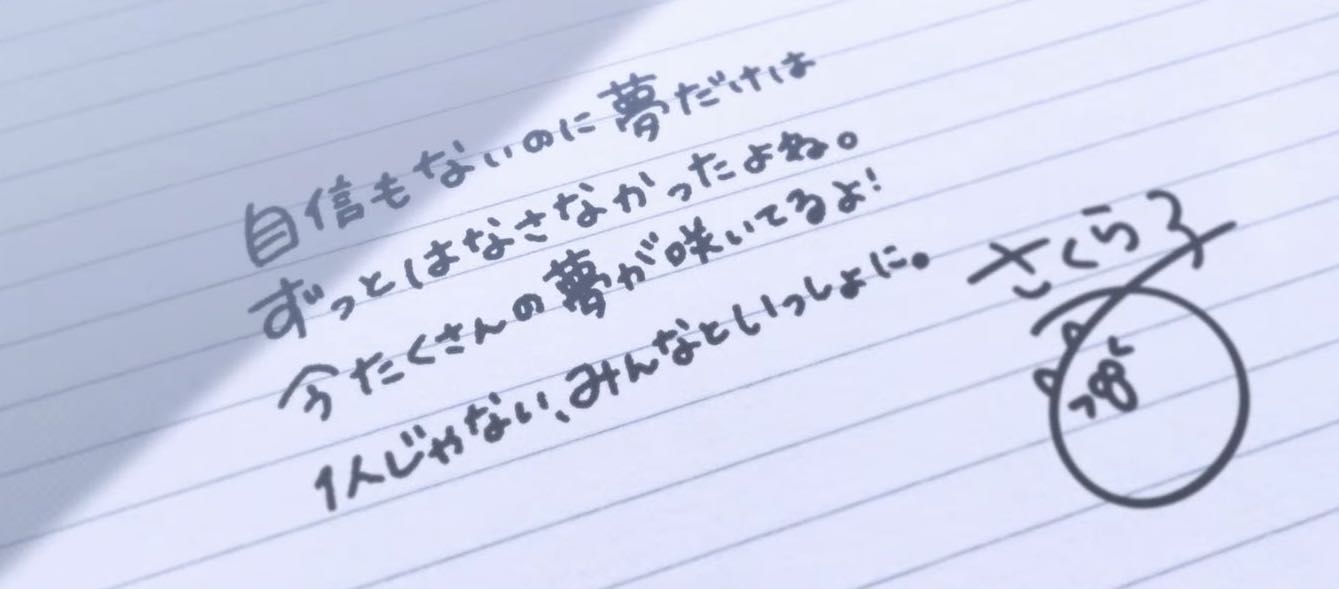 自信もないのに夢だけは
ずっとはなさなかったよね。
今たくさんの夢が咲いてるよ!
1人じゃない、みんなといっしょに。
さくら